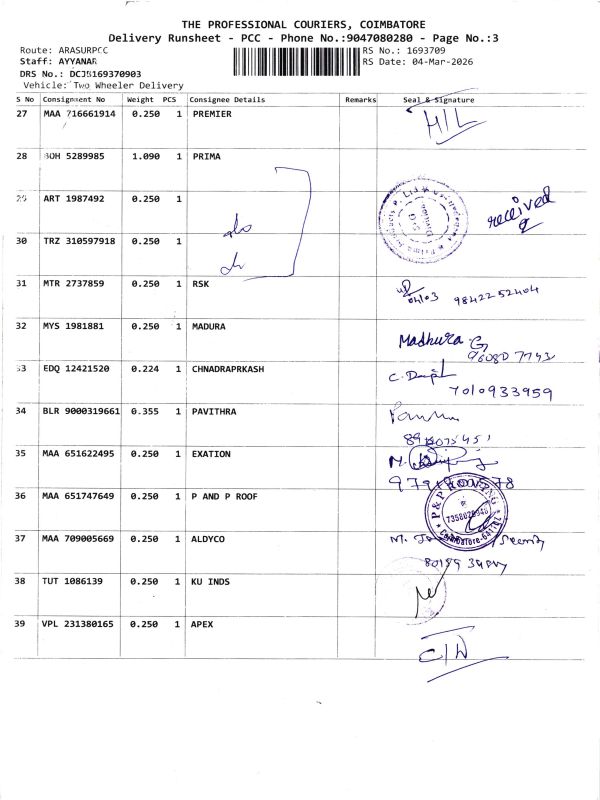 THE PROFESSIONAL COURIERS, COIMBATORE
Delivery Runsheet - PCC - Phone No.:9047080280 - Page No.:3
Route: ARASURPCC RS No.: 1693709
Staff: AYYANAR RS Date: 04-Mar-2026
DRS No.: DCJ5169370903
Vehicle: Two Wheeler Delivery
S No Consignment No Weight PCS Consignee Details Remarks Seal & Signature
27 MAA 716661914 0.250 1 PREMIER H/L
28 BOH 5289985 1.090 1 PRIMA
29 ART 1987492 0.250 1 received
30 TRZ 310597918 0.250 1
31 MTR 2737859 0.250 1 RSK 04/03 9842252404
32 MYS 1981881 0.250 1 MADURA Madhura G
33 EDQ 12421520 0.224 1 CHNADRAPRKASH C.
7010933959
34 BLR 9000319661 0.355 1 PAVITHRA
35 MAA 651622495 0.250 1 EXATION
36 MAA 651747649 0.250 1 P AND P ROOF P&P ROOFING
37 MAA 709005669 0.250 1 ALDYCO
38 TUT 1086139 0.250 1 KU INDS
39 VPL 231380165 0.250 1 APEX